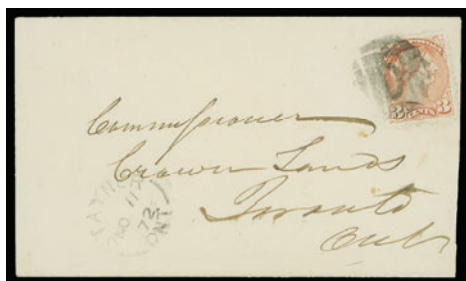 3 CENTS 3
Commissioner
Crown Lands
Toronto
Ont
NO 11
72
ONT